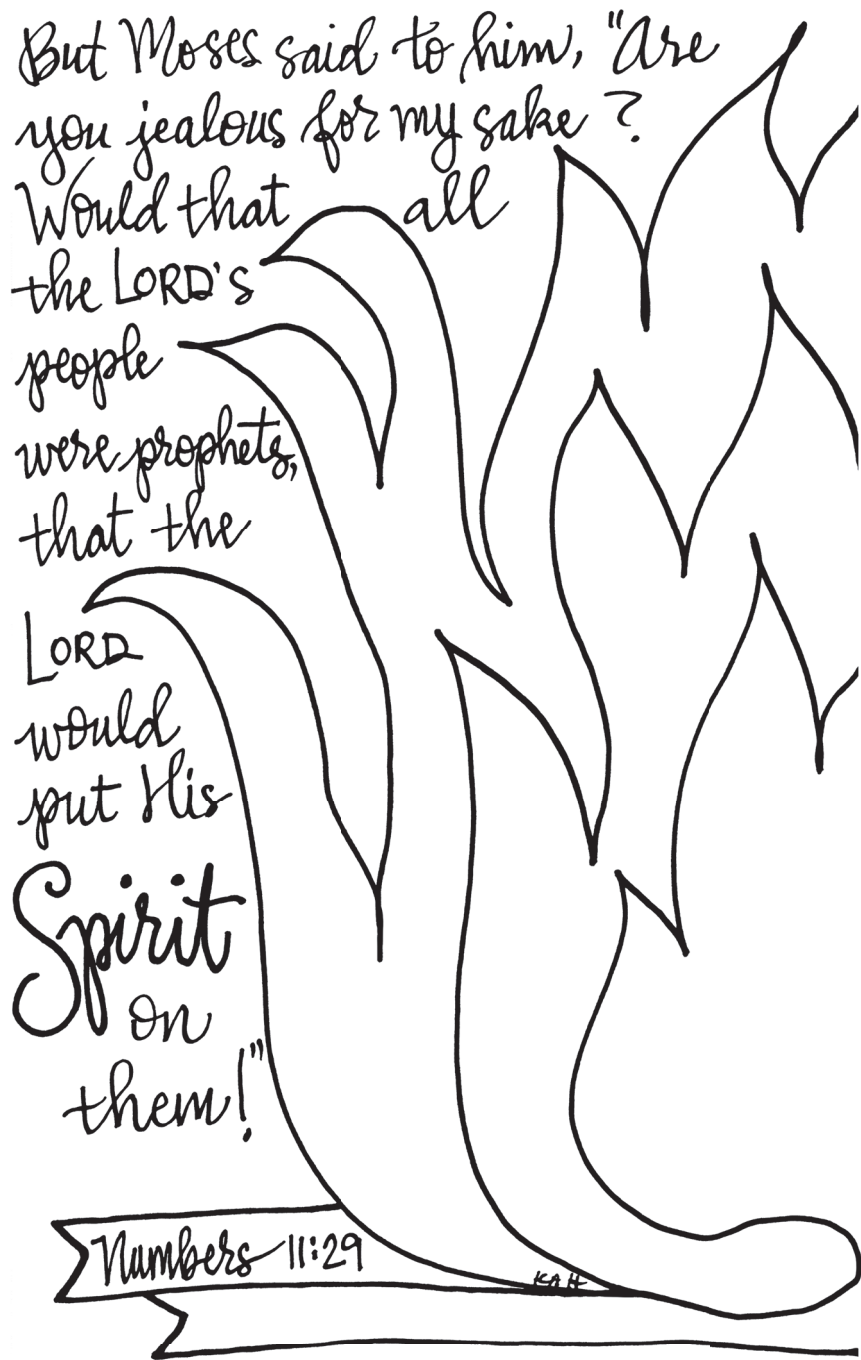 But Moses said to him, "Are
you jealous for my sake?
Would that all
the LORD'S
people
were prophets,
that the
LORD
would
put His
Spirit
on
them!"
Numbers 11:29
KAH